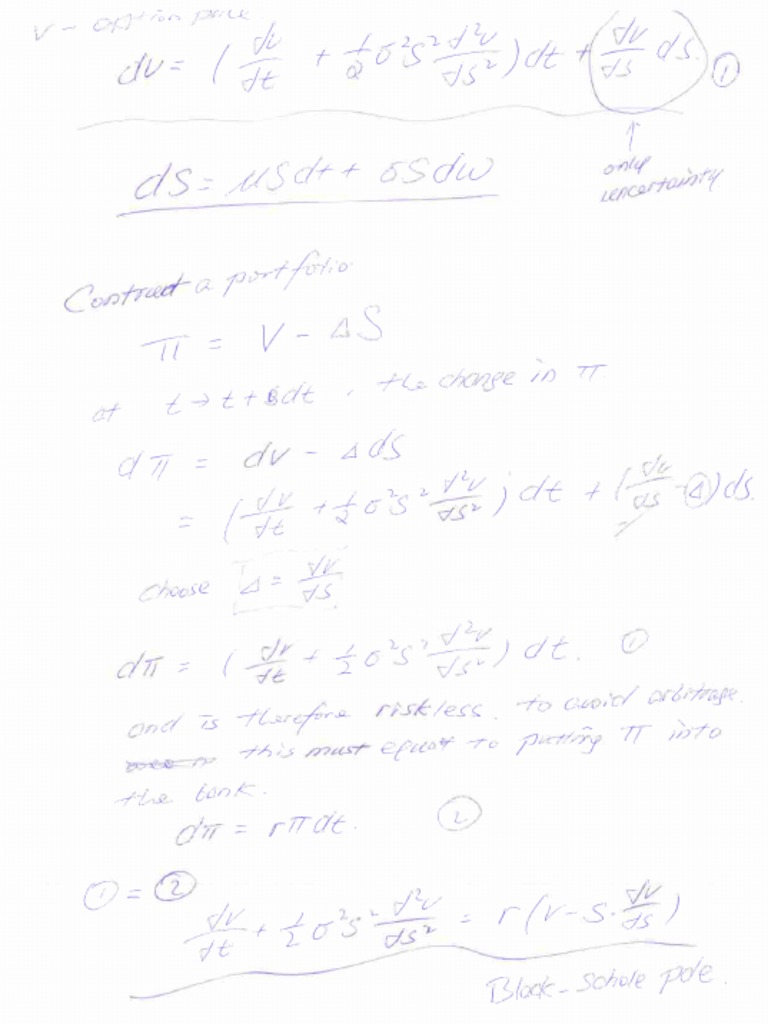 V - option price
dv = (dv/dt + 1/2 σ²S² d²v/ds²) dt + dv/ds ds. ①
↑
only
uncertainty
dS = μSdt + σSdw
Construct a portfolio
π = V - ΔS
at t → t + dt, the change in π
dπ = dv - Δds
= (dv/dt + 1/2 σ²S² d²v/ds²) dt + (dv/ds - Δ) ds.
choose Δ = dv/ds
dπ = (dv/dt + 1/2 σ²S² d²v/ds²) dt. ①
and is therefore riskless. to avoid arbitrage.
this must equat to putting π into
the bank.
dπ = rπdt. ②
① = ②
dv/dt + 1/2 σ²S² d²v/ds² = r(v - S·dv/ds)
Black-Schole pde.